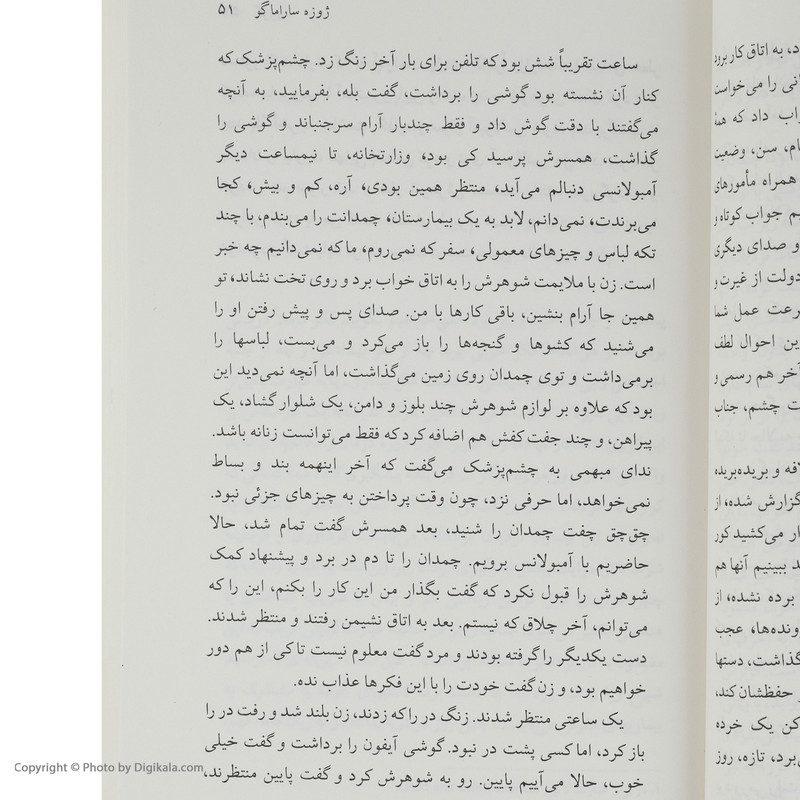 ژوزه ساراماگو ۵۱
ساعت تقریباً شش بود که تلفن برای بار آخر زنگ زد. چشم‌پزشک که
کنار آن نشسته بود گوشی را برداشت، گفت بله، بفرمایید، به آنچه
می‌گفتند با دقت گوش داد و فقط چندبار آرام سرجنباند و گوشی را
گذاشت، همسرش پرسید کی بود، وزارتخانه، تا نیمساعت دیگر
آمبولانسی دنبالم می‌آید، منتظر همین بودی، آره، کم و بیش، کجا
می‌برندت، نمی‌دانم، لابد به یک بیمارستان، چمدانت را می‌بندم، با چند
تکه لباس و چیزهای معمولی، سفر که نمی‌روم، ما که نمی‌دانیم چه خبر
است. زن با ملایمت شوهرش را به اتاق خواب برد و روی تخت نشاند، تو
همین جا آرام بنشین، باقی کارها با من. صدای پس و پیش رفتن او را
می‌شنید که کشوها و گنجه‌ها را باز می‌کرد و می‌بست، لباسها را
برمی‌داشت و توی چمدان روی زمین می‌گذاشت، اما آنچه نمی‌دید این
بود که علاوه بر لوازم شوهرش چند بلوز و دامن، یک شلوار گشاد، یک
پیراهن، و چند جفت کفش هم اضافه کرد که فقط می‌توانست زنانه باشد.
ندای مبهمی به چشم‌پزشک می‌گفت که آخر اینهمه بند و بساط
نمی‌خواهد، اما حرفی نزد، چون وقت پرداختن به چیزهای جزئی نبود.
چق‌چق چفت چمدان را شنید، بعد همسرش گفت تمام شد، حالا
حاضریم با آمبولانس برویم. چمدان را تا دم در برد و پیشنهاد کمک
شوهرش را قبول نکرد که گفت بگذار من این کار را بکنم، این را که
می‌توانم، آخر چلاق که نیستم. بعد به اتاق نشیمن رفتند و منتظر شدند.
دست یکدیگر را گرفته بودند و مرد گفت معلوم نیست تا کی از هم دور
خواهیم بود، و زن گفت خودت را با این فکرها عذاب نده.
یک ساعتی منتظر شدند. زنگ در را که زدند، زن بلند شد و رفت در را
باز کرد، اما کسی پشت در نبود. گوشی آیفون را برداشت و گفت خیلی
خوب، حالا می‌آییم پایین. رو به شوهرش کرد و گفت پایین منتظرند،
د، به اتاق کار برود
را می‌خواست
داد که همهٔ
سن، وضعیت
همراه مأمورهای
جواب کوتاه و
و صدای دیگری
دولت از غیرت و
عمل شما
این احوال لطف
آخر هم رسمی و
چشم، جناب
و بریده‌بریده
گزارش شده، از
می‌کشید کور
ببینیم آنها هم
برده نشده، از
عجب
گذاشت، دستها
حفظشان کند،
کن یک خرده
تازه، روز
Copyright © Photo by Digikala.com